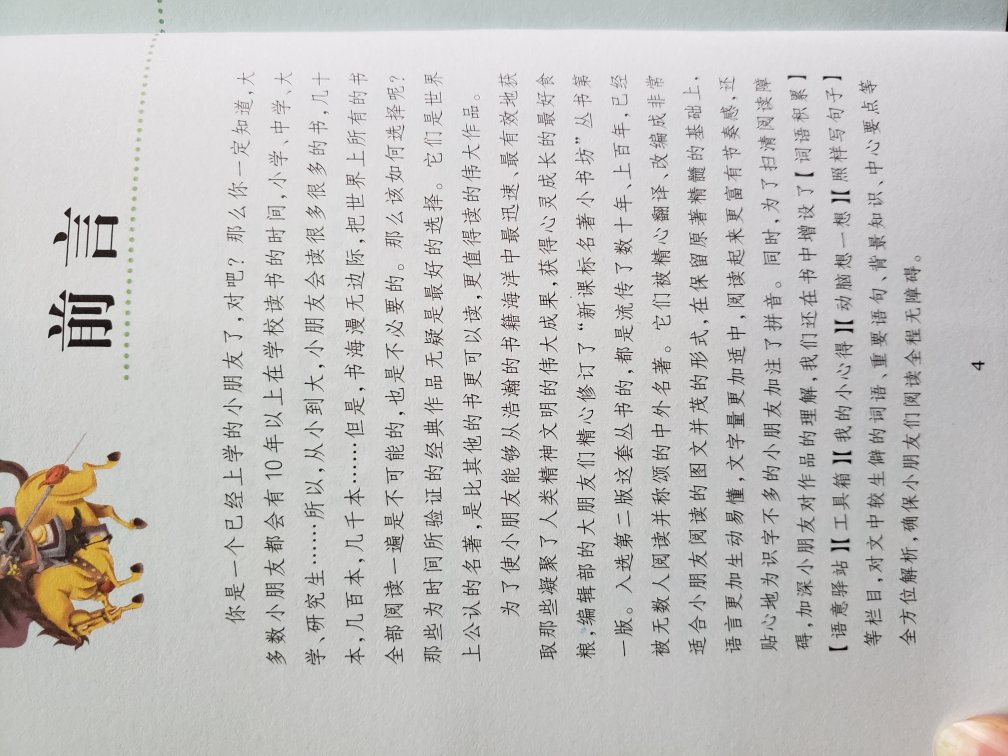 前言
你是一个已经上学的小朋友了，对吧？那么你一定知道，大
多数小朋友都会有10年以上在学校读书的时间，小学、中学、大
学、研究生……所以，从小到大，小朋友会读很多很多的书，几十
本，几百本，几千本……但是，书海漫无边际，把世界上所有的书
全部阅读一遍是不可能的，也是不必要的。那么该如何选择呢？
那些为时间所验证的经典作品无疑是最好的选择。它们是世界
上公认的名著，是比其他的书更可以读，更值得读的伟大作品。
为了使小朋友能够从浩瀚的书籍海洋中最迅速、最有效地获
取那些凝聚了人类精神文明的伟大成果，获得心灵成长的最好食
粮，编辑部的大朋友们精心修订了“新课标名著小书坊”丛书第
一版。入选第二版这套丛书的，都是流传了数十年、上百年，已经
被无数人阅读并称颂的中外名著。它们被精心翻译、改编成非常
适合小朋友阅读的图文并茂的形式，在保留原著精髓的基础上，
语言更加生动易懂，文字量更加适中，阅读起来更富有节奏感，还
贴心地为识字不多的小朋友加注了拼音。同时，为了扫清阅读障
碍，加深小朋友对作品的理解，我们还在书中增设了【词语积累】
【语意驿站】【工具箱】【我的小心得】【动脑想一想】【照样写句子】
等栏目，对文中较生僻的词语、重要语句、背景知识、中心要点等
全方位解析，确保小朋友们阅读全程无障碍。
4